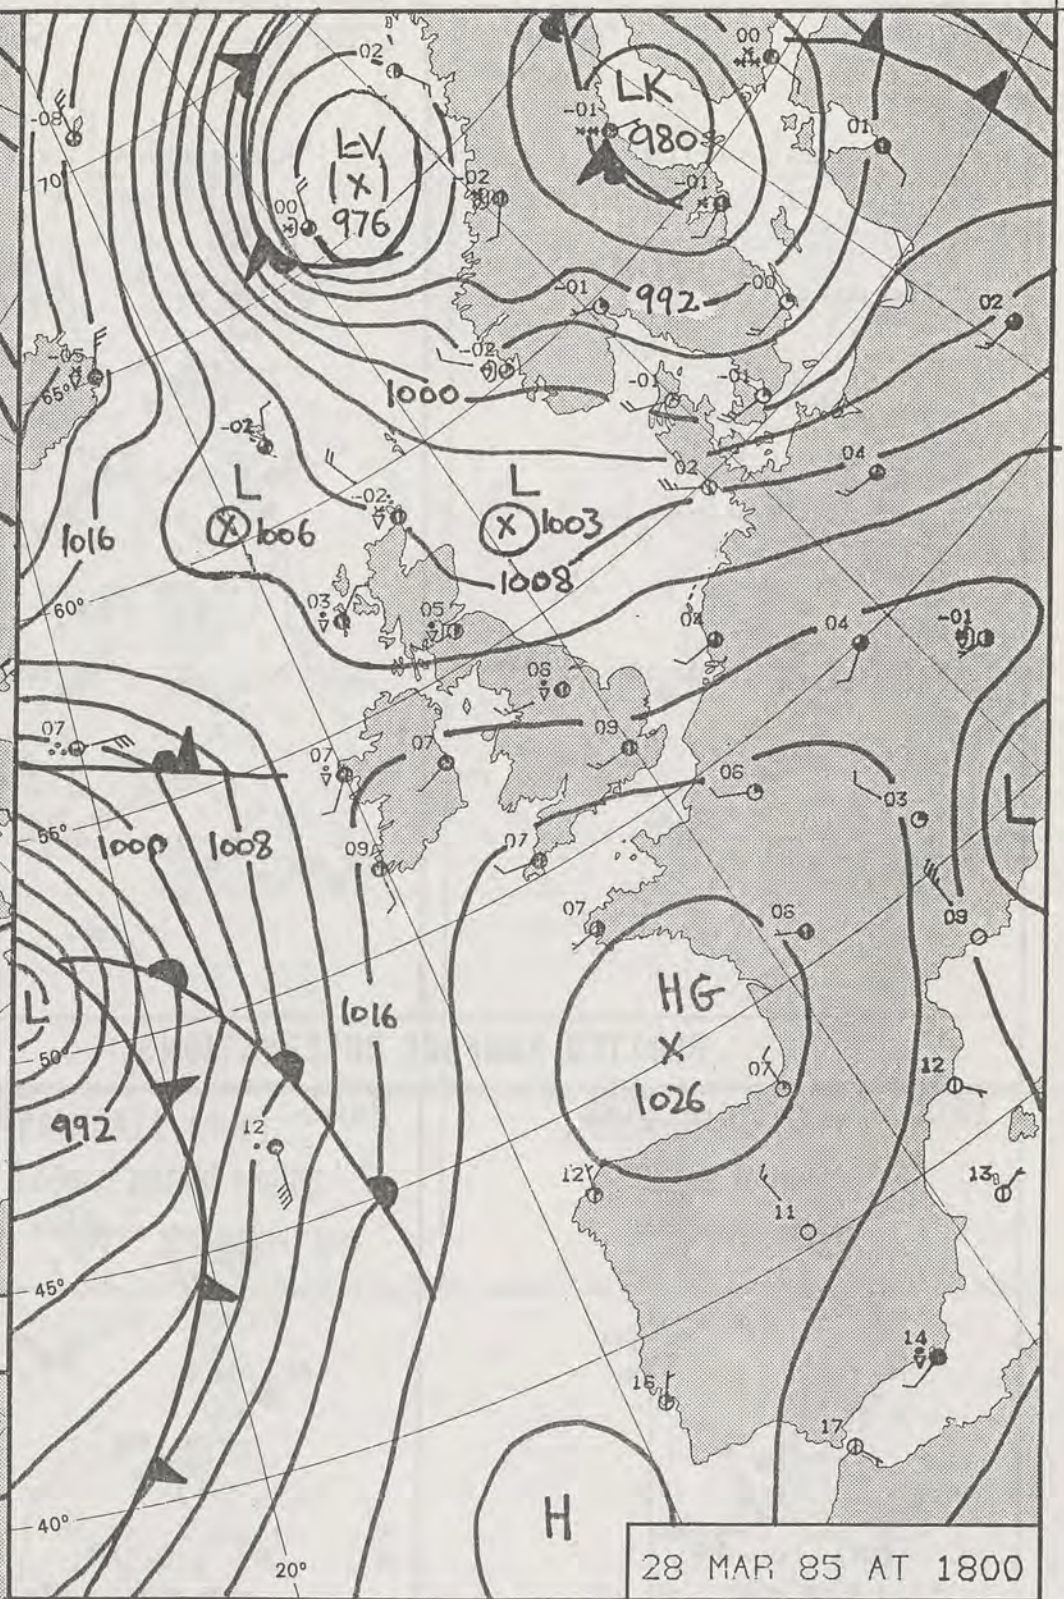 00
02
-08
LK
-01
980
01
LV
(X)
976
70°
-02
-01
00
-01
992
00
02
-05
65°
-02
1000
-01
-01
-02
02
04
L
X 1006
-02
L
X 1003
1016
1008
60°
03
05
04
04
-01
06
07
07
07
09
06
03
L
55°
1000
1008
09
07
07
06
09
HG
X
1026
L
1016
50°
07
12
992
12
12
13
11
45°
14
16
17
H
40°
20°
28 MAR 85 AT 1800